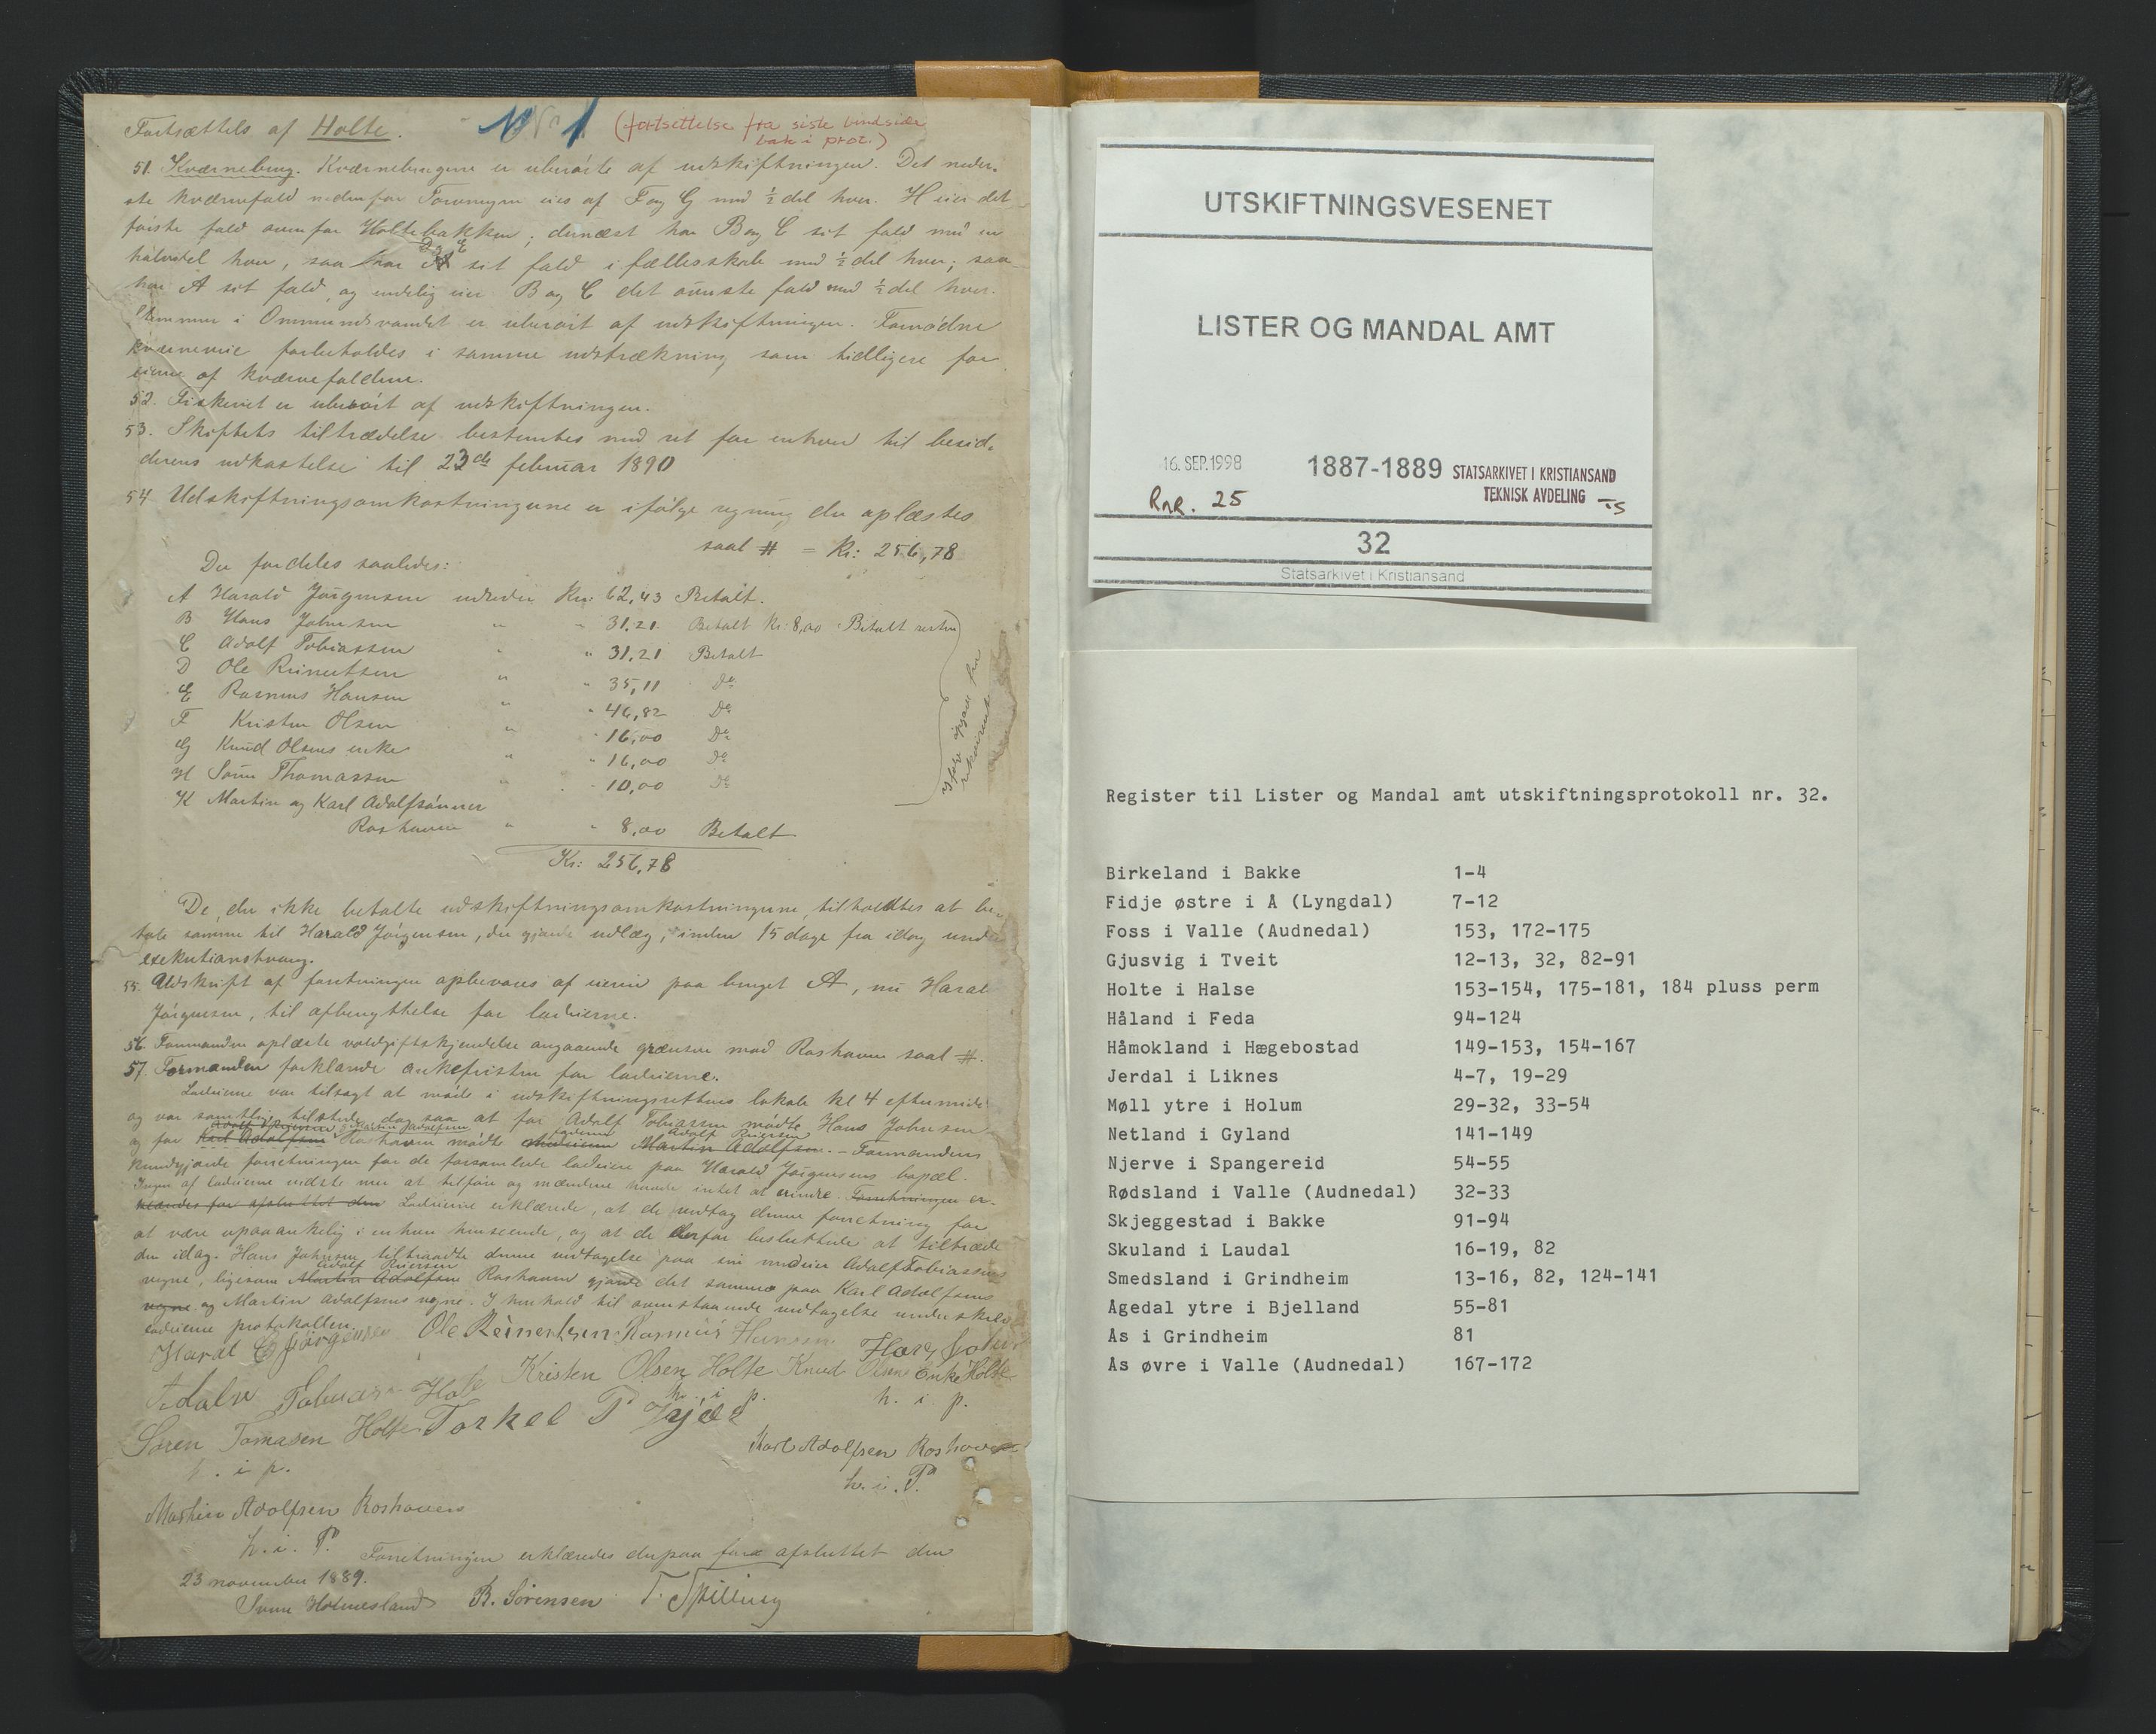 Fortsættels af Holte. No 1 (fortsettelse fra siste bindside
bak i prot.)
51. Kværnebrug. Kværnebrugene er uberørte af udskiftningen. Det neder-
ste kværnefald nedenfor Foreningen eies af F og G med ½ del hver. H eier det
første fald ovenfor Holtebakken; dernæst har B og C sit fald med en
halvdel hver, saa har D og E sit fald i fællesskab med ½ del hver; saa
har A sit fald, og endelig eier B og C det øverste fald med ½ del hver.
Stemmen i Ommundsvandet er uberørt af udskiftningen. Fornødne
kværneveie forbeholdes i samme udstrækning som tidligere for
eierne af kværnefaldene.
52. Fiskeriet er uberørt af udskiftningen.
53. Skiftets tiltrædelse bestemtes med ret for enhver til besid-
derens udkastelse til 23de februar 1890
54 Udskiftningsomkostningerne er ifølge regning, der oplæstes
saal # = Kr: 256,78
Der fordeles saaledes:
A Harald Jørgensen udreder Kr: 62,43 Betalt.
B Hans Johnsen " " 31.21. Betalt Kr. 8,00 Betalt resten
C Adolf Tobiassen " " 31,21 Betalt
D Ole Reinertsen " " 35,11 Do
E Rasmus Hansen " " 46,82 Do
F Kristen Olsen " " 16,00 Do
G Knud Olsens enke " " 16,00 Do
H Søren Thomassen " " 10,00 Do
K Martin og Karl Adolfsønner
Roshaven " " 8,00 Betalt
Kr: 256,78
De, der ikke betalte udskiftningsomkostningerne, tilholdtes at be-
tale samme til Harald Jørgensen, der gjorde udlæg, inden 15 dage fra idag under
exekutionstvang.
55. Udskrift af forretningen opbevares af eieren paa bruget A, nu Harald
Jørgensen, til afbenyttelse for lodeierne.
56. Formanden oplæste voldgiftskjendelse angaaende grænsen mod Roshaven saal #.
57. Formanden forklarede ankefristen for lodeierne.
Lodeierne var tilsagt at møde i udskiftningsrettens lokale kl 4 eftermiddag
og var samtlige tilstede, dog saa at for Adolf Tobiassen mødte Hans Johnsen
og for Karl Adolfsen Roshaven mødte Martin Adolfsen. – Formanden
kundgjorde forretningen for de forsamlede lodeiere paa Harald Jørgensens bopæl.
Ingen af lodeierne vidste mer at tilføre og mændene havde intet at erindre. Forretningen er-
klæredes for afsluttet den Lodeierne erklærede, at de vedtog denne forretning for
at være upaaankelig i enhver henseende, og at de derfor besluttede at tiltræde
den idag. Hans Johnsen tiltraadte denne vedtagelse paa sin medeier Adolf Tobiassens
vegne, ligesom Martin Adolfsen Roshaven gjorde det samme paa Karl Adolfsens
vegne og Martin Adolfsens vegne. I henhold til ovenstaaende vedtagelse underskrev
lodeierne protokollen.
Haral Jørgensen Ole Reinertsen Rasmus Hansen
Kristen Olsen Holte Knud Olsens Enke Holte
h. i p. h. i p.
Søren Tomasen Holte Torkel P
h. i p. Karl Adolfsen Roshaven
h. i. P.
Martin Adolfsen Roshaven
h. i. P. Forretningen erklæredes derpaa for afsluttet den
23 november 1889.
Holmesland R. Sørensen T. Spilling
UTSKIFTNINGSVESENET
LISTER OG MANDAL AMT
16. SEP. 1998 1887-1889 STATSARKIVET I KRISTIANSAND
TEKNISK AVDELING
RNR. 25
32
Statsarkivet i Kristiansand
Register til Lister og Mandal amt utskiftningsprotokoll nr. 32.
Birkeland i Bakke 1-4
Fidje østre i A (Lyngdal) 7-12
Foss i Valle (Audnedal) 153, 172-175
Gjusvig i Tveit 12-13, 32, 82-91
Holte i Halse 153-154, 175-181, 184 pluss perm
Håland i Feda 94-124
Håmokland i Hægebostad 149-153, 154-167
Jerdal i Liknes 4-7, 19-29
Møll ytre i Holum 29-32, 33-54
Netland i Gyland 141-149
Njerve i Spangereid 54-55
Rødsland i Valle (Audnedal) 32-33
Skjeggestad i Bakke 91-94
Skuland i Laudal 16-19, 82
Smedsland i Grindheim 13-16, 82, 124-141
Agedal ytre i Bjelland 55-81
As i Grindheim 81
As øvre i Valle (Audnedal) 167-172